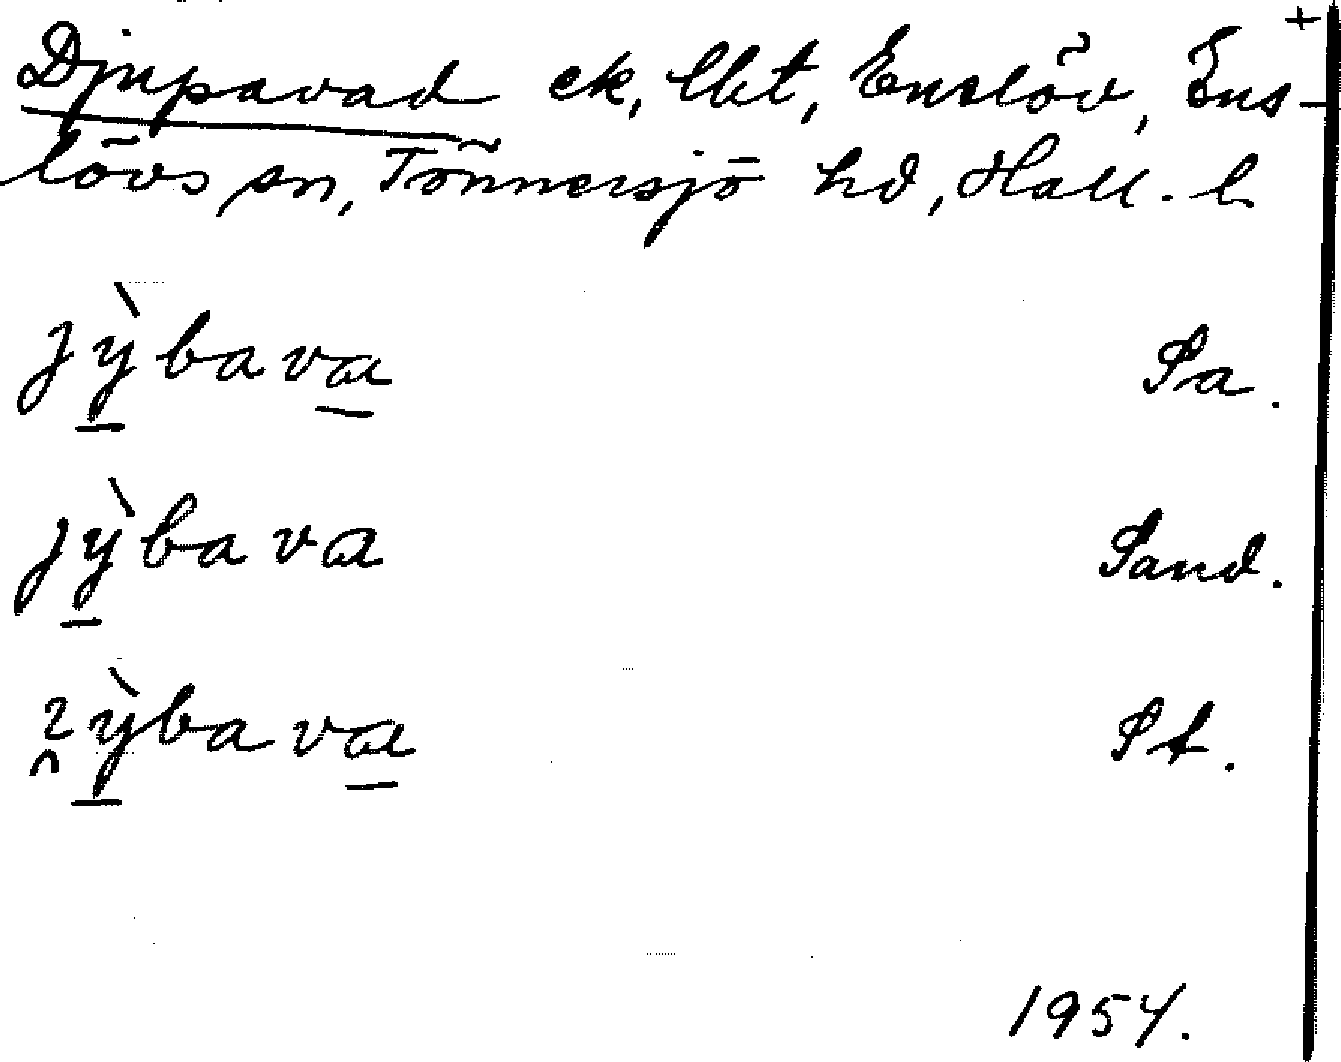 +
Djupavad ek, lht, Enslöv, Ens-
lövs sn, Tönnersjö hd, Hall. l
jỳbava Sa.
jỳbava Sand.
ỳbava St.
1954.